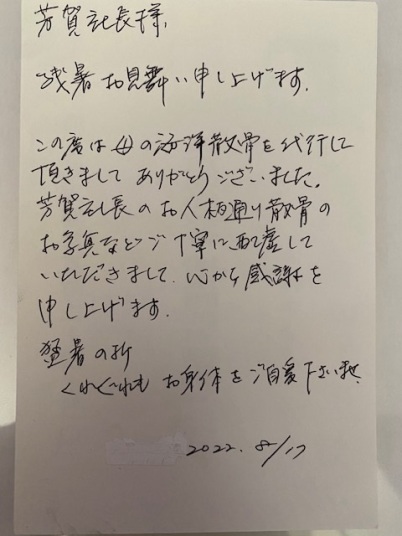 芳賀社長様、
残暑お見舞い申し上げます。
この度は母の海洋散骨を代行して
頂きまして ありがとうございました。
芳賀社長のお人柄通り散骨の
お写真などご丁寧に配慮して
いただきまして、心から感謝を
申し上げます。
猛暑の折
くれぐれも お身体をご自愛下さいませ。
2022. 8/17